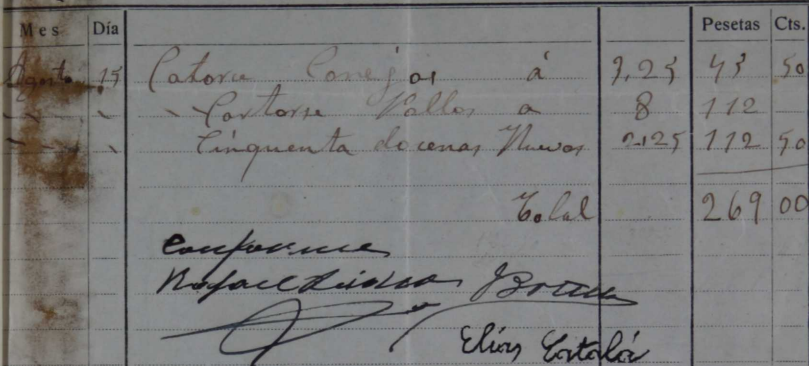 Mes Día Pesetas Cts.
Agosto 15 Catorse Conejos á 3,25 45 50
" " Cartorse Pollos a 8 112
" " Cinquenta docenas Huevos 2,25 112 50
Total 269 00
Conforme
Rafael
Elías Catalá